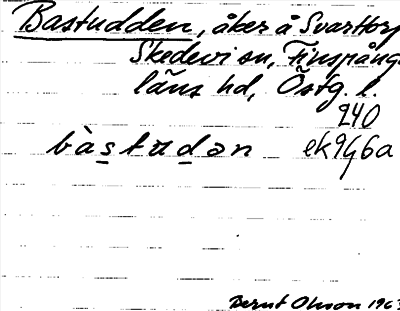 Bastudden, åker å Svarttorp
Skedevi sn, Finspånga
läns hd, Östg. l.
240
bàstɯdən ek 9G6a
Bernt Olsson 1963